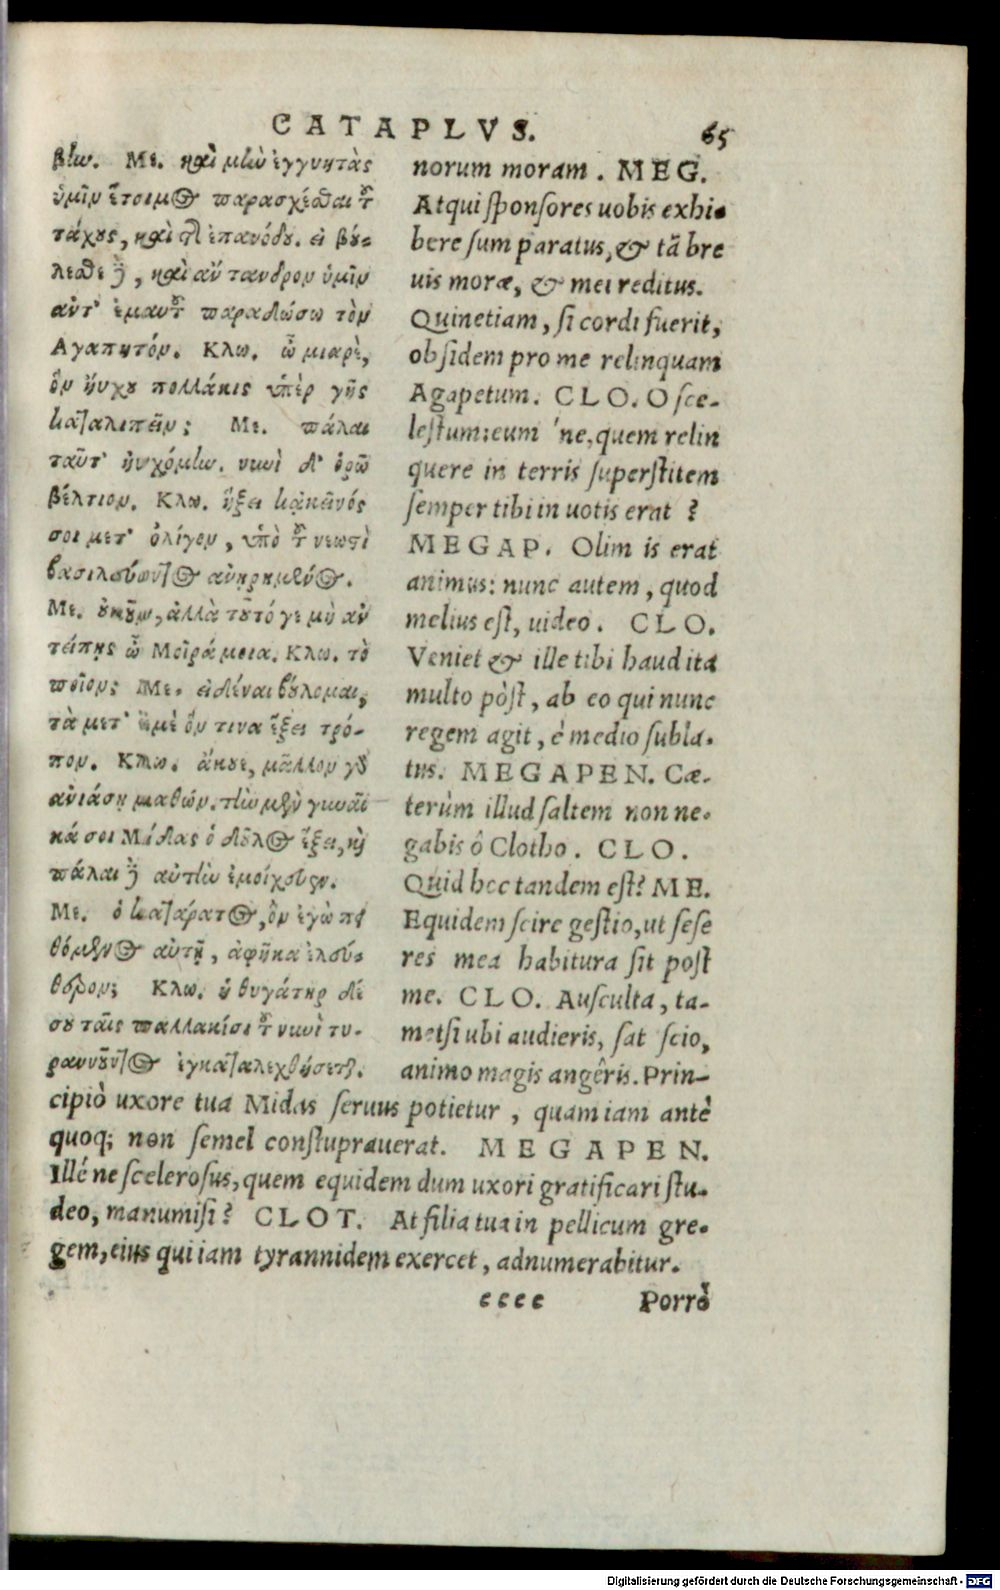 CATAPLVS. 65
βίων. Με. καὶ μὴν ἐγγυητὰς
ὑμῖν ἕτοιμος παρασχέσθαι τοῦ
τάχους, καὶ τῆς ἐπανόδου. εἰ βού-
λεσθε δὲ, καὶ ἄντανδρον ὑμῖν
ἀντ' ἐμαυτοῦ παραδώσω τὸν
Αγαπητόν. Κλω. ὦ μιαρὲ,
ὃν ηὔχου πολλάκις ὑπὲρ γῆς
καταλιπεῖν; Με. πάλαι
ταῦτ' ηὐχόμην. νυνὶ δ' ὁρῶ
βέλτιον. Κλω. ἥξει κἀκεῖνός
σοι μετ' ὀλίγον, ὑπὸ τοῦ νεωστὶ
βασιλεύοντος ἀνῃρημένος.
Με. οὐκοῦν, ἀλλὰ τοῦτό γε μὴ ἀν
τείπῃς ὦ Μοῖρά μοι. Κλω. τὸ
ποῖον; Με. εἰδέναι βούλομαι,
τὰ μετ' ἐμὲ ὅν τινα ἕξει τρό-
πον. Κλω. ἄκουε, μᾶλλον γὰρ
ἀνιάσῃ μαθών. τὴν μὲν γυναῖ
κά σοι Μίδας ὁ δοῦλος ἕξει, καὶ
πάλαι δὲ αὐτὴν ἐμοίχευεν.
Με. ὁ κατάρατος, ὃν ἐγὼ πει
θόμενος αὐτῇ, ἀφῆκα ἐλεύ-
θερον; Κλω. ἡ θυγάτηρ δέ
σου ταῖς παλλακίσι τοῦ νυνὶ τυ-
ραννοῦντος ἐγκαταλεχθήσεται.
norum moram. MEG.
Atqui sponsores uobis exhi-
bere sum paratus, & tã bre
uis moræ, & mei reditus.
Quinetiam, si cordi fuerit,
obsidem pro me relinquam
Agapetum. CLO. O sce-
lestum: eum 'ne, quem relin
quere in terris superstitem
semper tibi in uotis erat ?
MEGAP. Olim is erat
animus: nunc autem, quod
melius est, uideo. CLO.
Veniet & ille tibi haud ita
multo pòst, ab eo qui nunc
regem agit, è medio subla-
tus. MEGAPEN. Cæ-
terùm illud saltem non ne-
gabis ô Clotho. CLO.
Quid hoc tandem est? ME.
Equidem scire gestio, ut sese
res mea habitura sit post
me. CLO. Ausculta, ta-
metsi ubi audieris, sat scio,
animo magis angêris. Prin-
cipiò uxore tua Midas seruus potietur, quam iam antè
quoq; non semel constuprauerat. MEGAPEN.
Illé ne scelerosus, quem equidem dum uxori gratificari stu-
deo, manumisi? CLOT. At filia tua in pellicum gre-
gem, eius qui iam tyrannidem exercet, adnumerabitur.
eeee Porrò
Digitalisierung gefördert durch die Deutsche Forschungsgemeinschaft - DFG